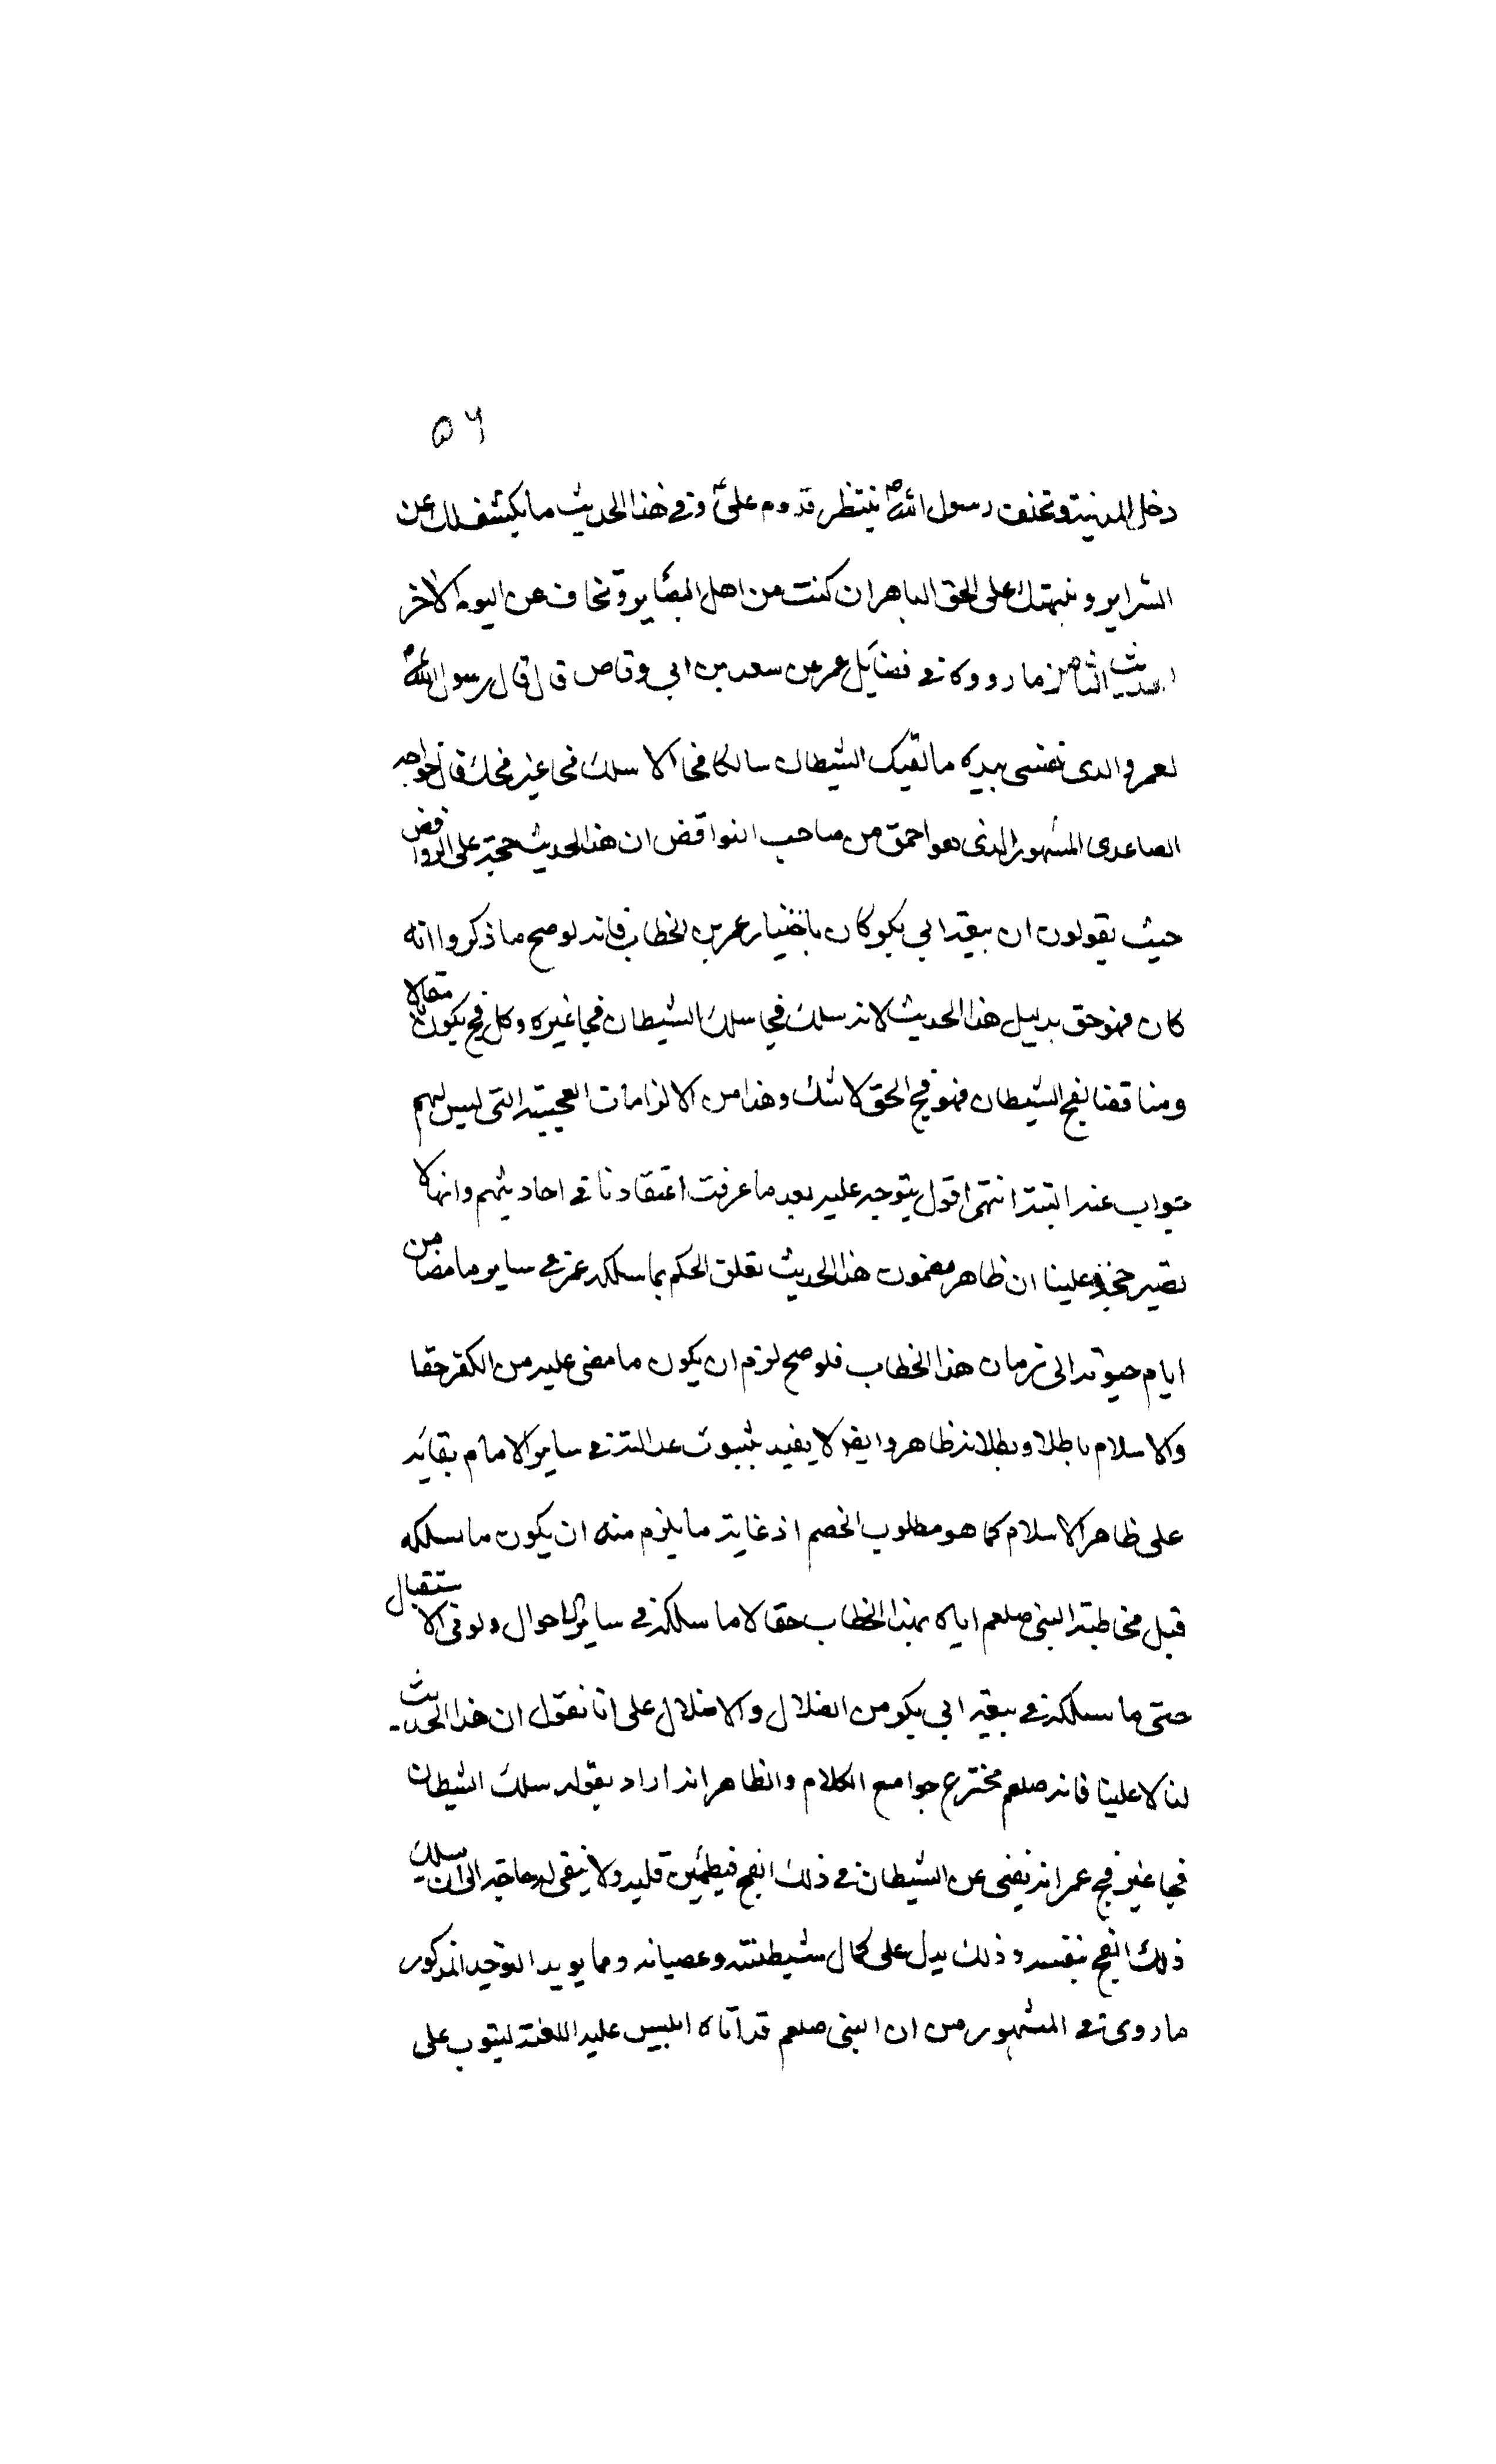 ٥٦
دخل المدينة وتخلف رسول الله ص ينتظر قدوم علي ع وفي هذا الحديث ما يكشف لك عن
السراير وينبهك على الحق الباهر ان كنت من اهل البصاير وتخاف عن اليوم الاخر
الحديث الثامن ما رووه في فضايل عمر عن سعد بن ابي وقاص قال قال رسول الله ص
لعمر والذي نفسي بيده ما لقيك الشيطان سالكا فجا الا سلك فجا غير فجك قال خواجه
الصاعدي المشهور الذي هو احمق من صاحب النواقض ان هذا الحديث حجة على الروافض
حيث يقولون ان بيعة ابي بكر كان باختيار عمر بن الخطاب فانه لو صح ما ذكروا انه
كان فهو حق بدليل هذا الحديث لانه سلك فجا سلك الشيطان فجا غيره وكل فج يكون مقابلا
ومناقضا لفج الشيطان فهو فج الحق لا شك وهذا من الالزامات العجيبة التي ليس لهم
جواب عنه البتة انتهى اقول يتوجه عليه بعد ما عرفت اعتقادنا في احاديثهم وانها لا
تصير حجة علينا ان ظاهر مضمون هذا الحديث تعلق الحكم بما سلكه عمر في ساير ما مضا من
ايام حيوته الى زمان هذا الخطاب فلو صح لزم ان يكون ما مضى عليه من الكفر حقا
والاسلام باطلا وبطلانه ظاهر وايضا لا يفيد بثبوت عدالته في ساير الامام بقايه
على ظاهر الاسلام كما هو مطلوب الخصم اذ غاية ما يلزم منه ان يكون ما سلكه
قبل مخاطبة النبي صلعم اياه بهذا الخطاب حقا لا ما سلكه في ساير الاحوال ولو في الاستقبال
حتى ما سلكه في بيعة ابي بكر من الضلال والاضلال على انا نقول ان هذا الحديث
لنا لا علينا فانه صلعم مخترع جوامع الكلام والظاهر انه اراد بقوله سلك الشيطان
فجا غير فج عمر انه يغني عن الشيطان في ذلك الفج فيطمئن قلبه ولا يبقى له حاجة الى ان سلك
ذلك الفج بنفسه وذلك يدل على كمال شيطنته وعصيانه ومما يويد التوجيه المذكور
ما روي في المشهور من ان النبي صلعم قد اتاه ابليس عليه اللعنة ليتوب على